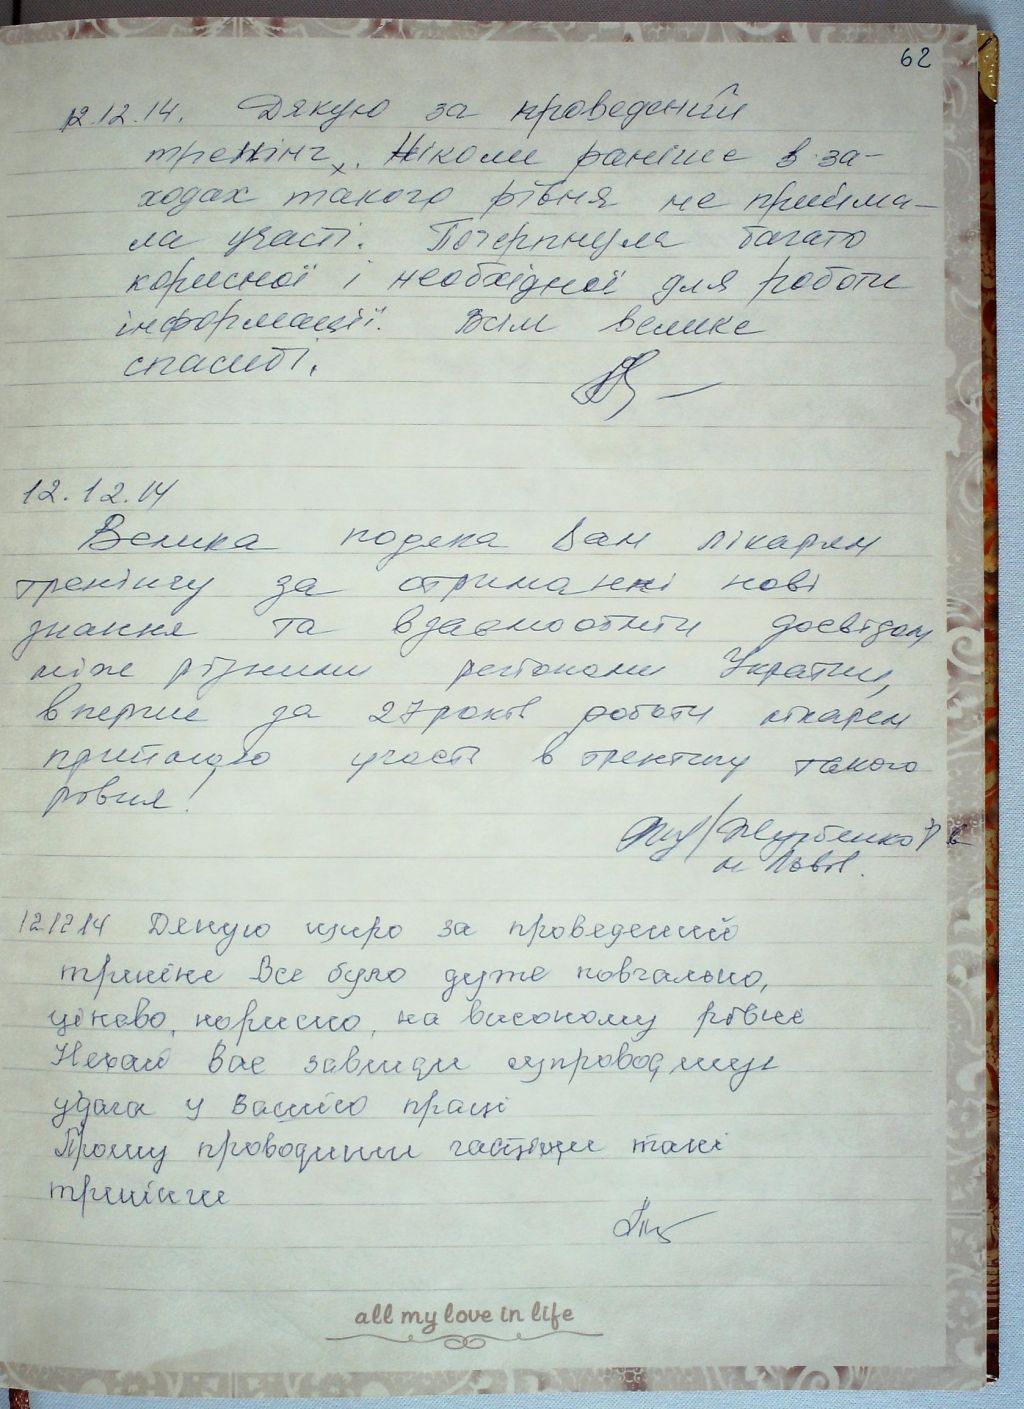 62
12.12.14. Дякую за проведений
тренінг. Ніколи раніше в за-
ходах такого рівня не прийма-
ла участі. Почерпнула багато
корисної і необхідної для роботи
інформації. Всім велике
спасибі.
12.12.14
Велика подяка Вам лікарям
тренінгу за отриманні нові
знання та
між різними регіонами України,
вперше за 27 років роботи лікарем
приймаю участь в тренінгу такого
рівня!
м Львів.
12.12.14 Дякую щиро за проведений
тренінг Все було дуже повчально,
цікаво, корисно, на високому рівні
Нехай Вас завжди супроводжує
удача у Вашій праці
Прошу проводити частіше такі
тренінги
all my love in life